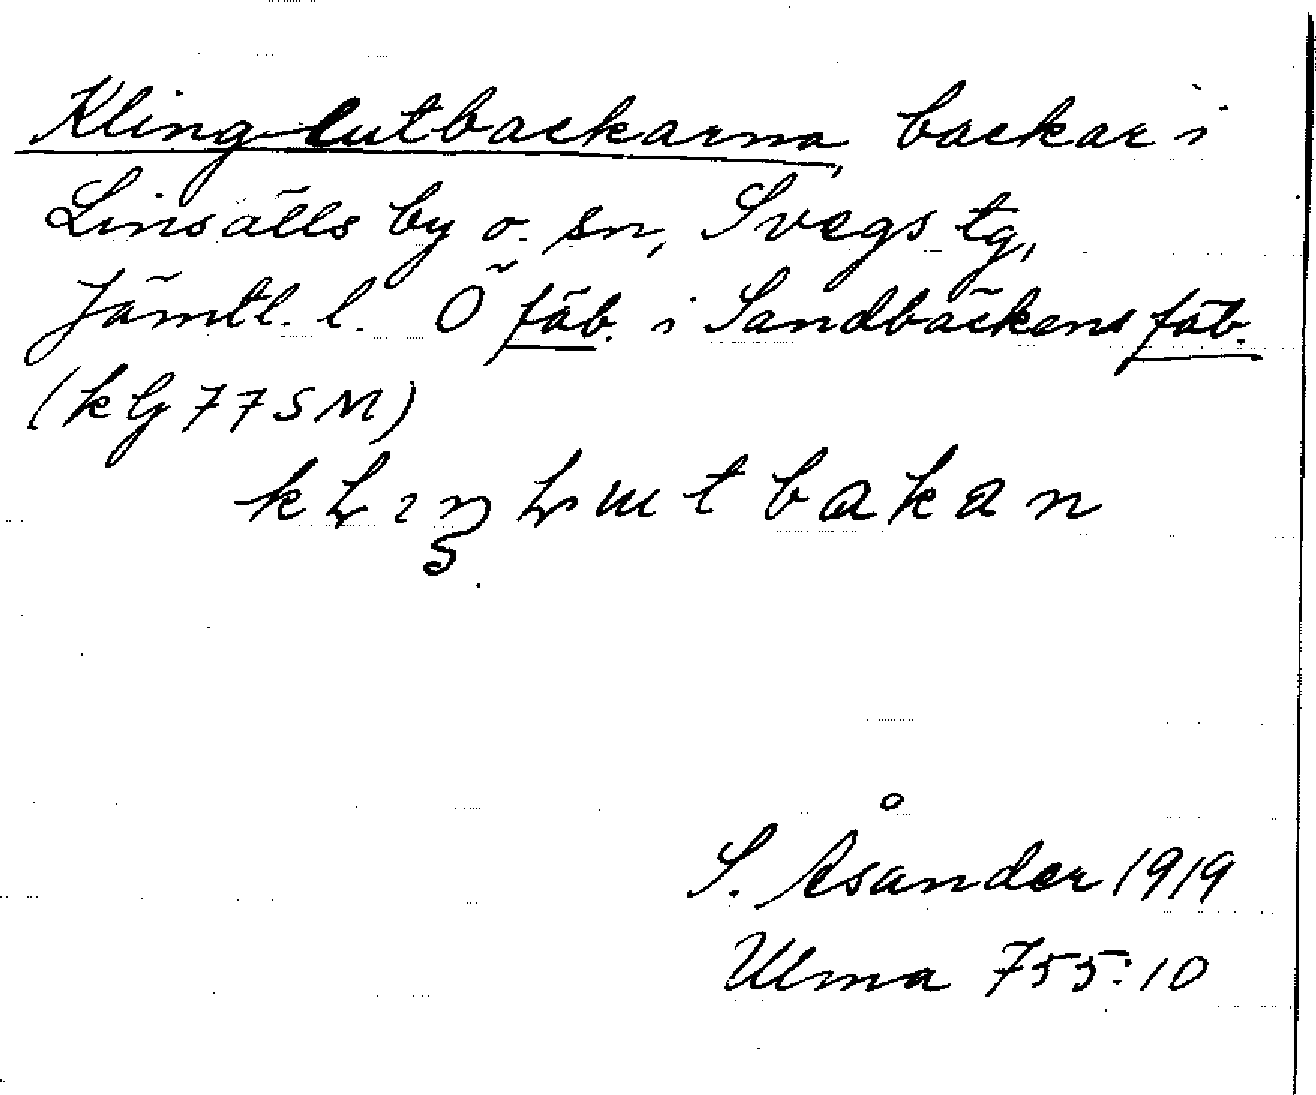 Klinglutbackarna, backar i
Linsälls by o. sn, Svegs tg,
Jämtl. l. Ö fäb. i Sandbäckens fäb.
(kbg 77 SM)
bakan
S. Åsander 1919
Ulma 755:10